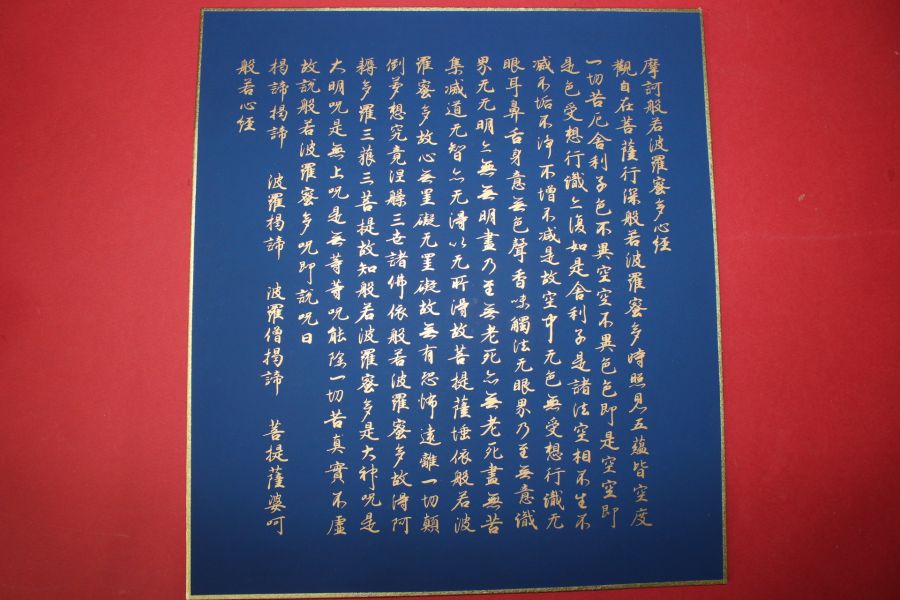 摩訶般若波羅蜜多心経
觀自在菩薩行深般若波羅蜜多時照見五蘊皆空度
一切苦厄舍利子色不異空空不異色色即是空空即
是色受想行識亦復如是舍利子是諸法空相不生不
滅不垢不淨不增不減是故空中无色無受想行識无
眼耳鼻舌身意無色聲香味觸法无眼界乃至無意識
界无无明亦無無明盡乃至無老死亦無老死盡無苦
集滅道无智亦无得以无所得故菩提薩埵依般若波
羅蜜多故心無罣礙无罣礙故無有恐怖遠離一切顛
倒夢想究竟涅槃三世諸佛依般若波羅蜜多故得阿
耨多羅三藐三菩提故知般若波羅蜜多是大神呪是
大明呪是無上呪是無等等呪能除一切苦真實不虛
故說般若波羅蜜多呪即說呪曰
揭諦揭諦 波羅揭諦 波羅僧揭諦 菩提薩婆呵
般若心経